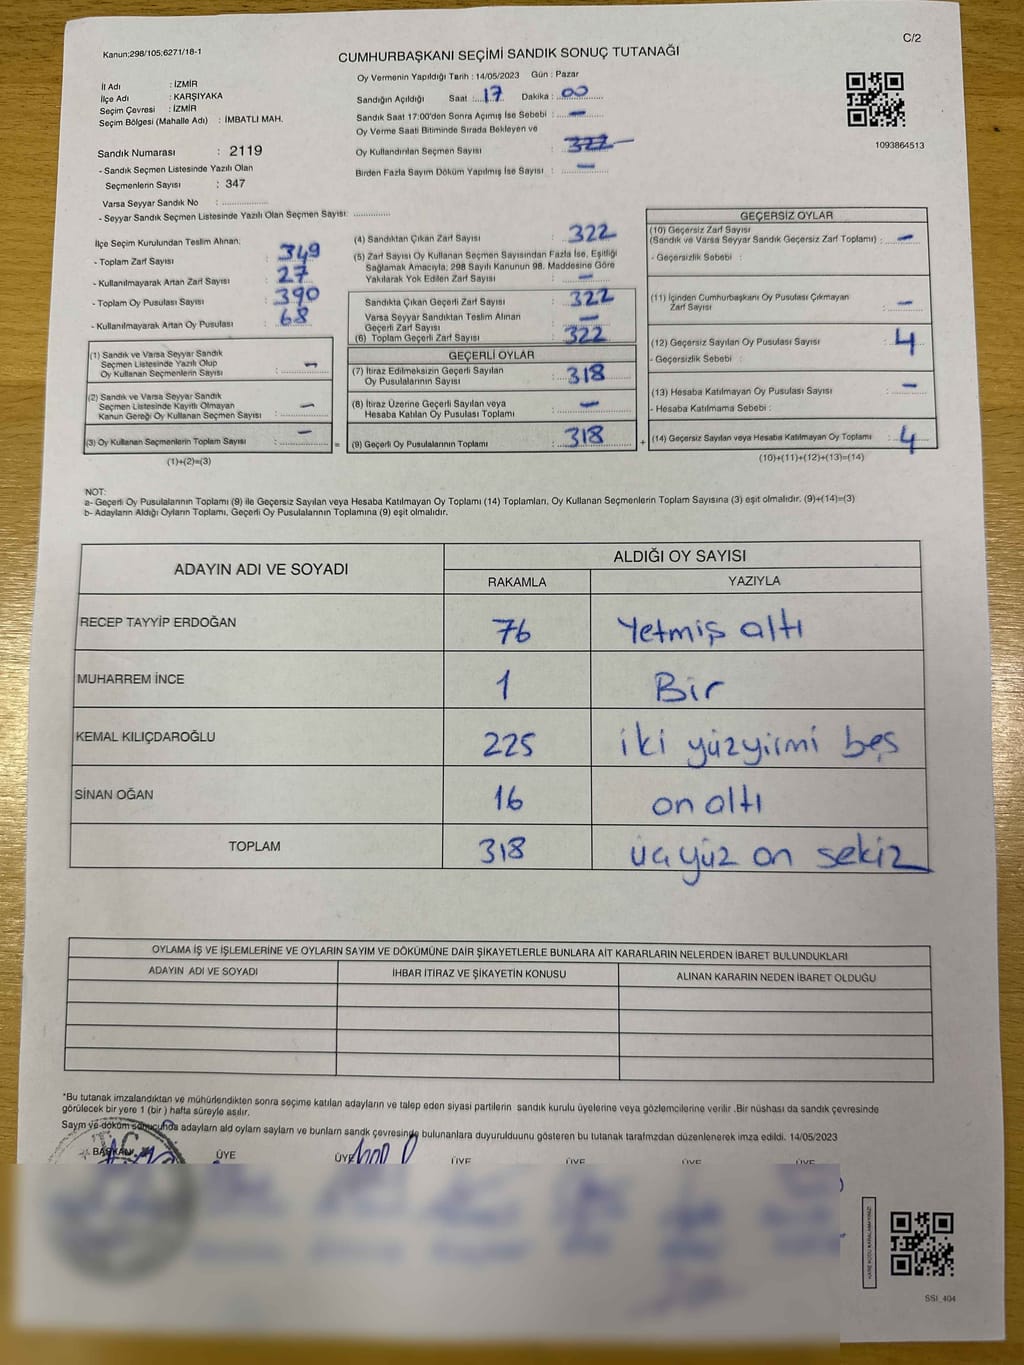 Kanun;298/105;6271/18-1
C/2
CUMHURBAŞKANI SEÇİMİ SANDIK SONUÇ TUTANAĞI
İl Adı : İZMİR
İlçe Adı : KARŞIYAKA
Seçim Çevresi : İZMİR
Seçim Bölgesi (Mahalle Adı) : İMBATLI MAH.
Sandık Numarası : 2119
- Sandık Seçmen Listesinde Yazılı Olan
Seçmenlerin Sayısı : 347
Varsa Seyyar Sandık No : ..............
- Seyyar Sandık Seçmen Listesinde Yazılı Olan Seçmen Sayısı: ............
Oy Vermenin Yapıldığı Tarih : 14/05/2023 Gün : Pazar
Sandığın Açıldığı Saat : 17 Dakika : 00
Sandık Saat 17:00'den Sonra Açımış İse Sebebi : —
Oy Verme Saati Bitiminde Sırada Bekleyen ve
Oy Kullandırılan Seçmen Sayısı : 322
Birden Fazla Sayım Döküm Yapılmış İse Sayısı : —
1093864513
İlçe Seçim Kurulundan Teslim Alınan;
- Toplam Zarf Sayısı : 349
- Kullanılmayarak Artan Zarf Sayısı : 27
- Toplam Oy Pusulası Sayısı : 390
- Kullanılmayarak Artan Oy Pusulası : 68
(1) Sandık ve Varsa Seyyar Sandık
Seçmen Listesinde Yazılı Olup
Oy Kullanan Seçmenlerin Sayısı : —
(2) Sandık ve Varsa Seyyar Sandık
Seçmen Listesinde Kayıtlı Olmayan
Kanun Gereği Oy Kullanan Seçmen Sayısı : —
(3) Oy Kullanan Seçmenlerin Toplam Sayısı : —
(1)+(2)=(3)
(4) Sandıktan Çıkan Zarf Sayısı : 322
(5) Zarf Sayısı Oy Kullanan Seçmen Sayısından Fazla İse, Eşitliği
Sağlamak Amacıyla; 298 Sayılı Kanunun 98. Maddesine Göre
Yakılarak Yok Edilen Zarf Sayısı : —
Sandıkta Çıkan Geçerli Zarf Sayısı : 322
Varsa Seyyar Sandıktan Teslim Alınan
Geçerli Zarf Sayısı : —
(6) Toplam Geçerli Zarf Sayısı : 322
GEÇERLİ OYLAR
(7) İtiraz Edilmeksizin Geçerli Sayılan
Oy Pusulalarının Sayısı : 318
(8) İtiraz Üzerine Geçerli Sayılan veya
Hesaba Katılan Oy Pusulası Toplamı : —
= (9) Geçerli Oy Pusulalarının Toplamı : 318 +
GEÇERSİZ OYLAR
(10) Geçersiz Zarf Sayısı
(Sandık ve Varsa Seyyar Sandık Geçersiz Zarf Toplamı) : —
- Geçersizlik Sebebi :
(11) İçinden Cumhurbaşkanı Oy Pusulası Çıkmayan
Zarf Sayısı : —
(12) Geçersiz Sayılan Oy Pusulası Sayısı : 4
- Geçersizlik Sebebi :
(13) Hesaba Katılmayan Oy Pusulası Sayısı : —
- Hesaba Katılmama Sebebi :
(14) Geçersiz Sayılan veya Hesaba Katılmayan Oy Toplamı : 4
(10)+(11)+(12)+(13)=(14)
NOT:
a- Geçerli Oy Pusulalarının Toplamı (9) ile Geçersiz Sayılan veya Hesaba Katılmayan Oy Toplamı (14) Toplamları, Oy Kullanan Seçmenlerin Toplam Sayısına (3) eşit olmalıdır. (9)+(14)=(3)
b- Adayların Aldığı Oyların Toplamı, Geçerli Oy Pusulalarının Toplamına (9) eşit olmalıdır.
ADAYIN ADI VE SOYADI ALDIĞI OY SAYISI
RAKAMLA YAZIYLA
RECEP TAYYİP ERDOĞAN 76 Yetmiş altı
MUHARREM İNCE 1 Bir
KEMAL KILIÇDAROĞLU 225 iki yüzyirmi beş
SİNAN OĞAN 16 on altı
TOPLAM 318 üçyüz on sekiz
OYLAMA İŞ VE İŞLEMLERİNE VE OYLARIN SAYIM VE DÖKÜMÜNE DAİR ŞİKAYETLERLE BUNLARA AİT KARARLARIN NELERDEN İBARET BULUNDUKLARI
ADAYIN ADI VE SOYADI İHBAR İTİRAZ VE ŞİKAYETİN KONUSU ALINAN KARARIN NEDEN İBARET OLDUĞU
*Bu tutanak imzalandıktan ve mühürlendikten sonra seçime katılan adayların ve talep eden siyasi partilerin sandık kurulu üyelerine veya gözlemcilerine verilir .Bir nüshası da sandık çevresinde
görülecek bir yere 1 (bir ) hafta süreyle asılır.
Sayım ve döküm sonucunda adayların ald oyların sayları ve bunların sandk çevresinde bulunanlara duyurulduunu gösteren bu tutanak tarafmzdan düzenlenerek imza edildi. 14/05/2023
BAŞKAN ÜYE ÜYE ÜYE ÜYE ÜYE ÜYE
SSI_404